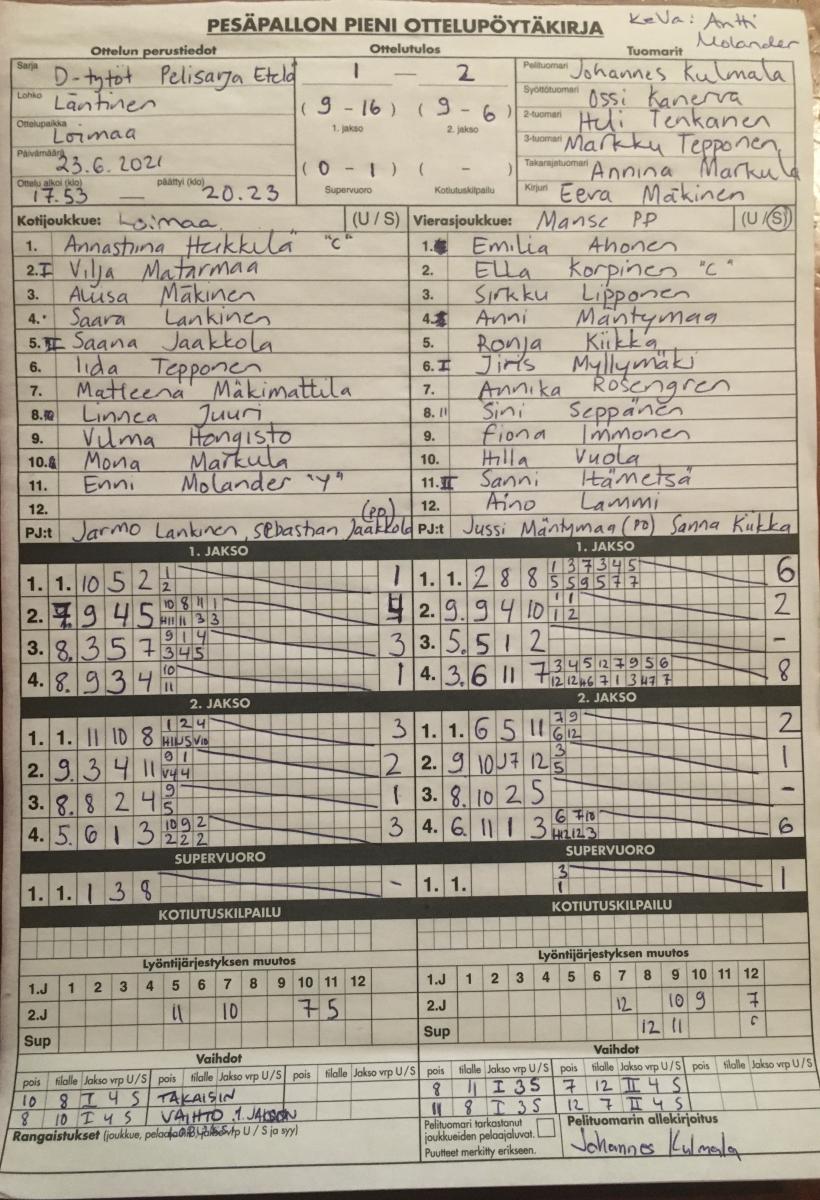 PESÄPALLON PIENI OTTELUPÖYTÄKIRJA
KeVa: Antti Molander
Ottelun perustiedot
Ottelutulos
Tuomarit
Sarja D-tytöt Pelisarja Etelä
Lohko Läntinen
Ottelupaikka Loimaa
Päivämäärä 23.6.2021
Ottelu alkoi (klo) 17.53 — päättyi (klo) 20.23
1 — 2
(9 - 16) (9 - 6)
1. jakso 2. jakso
(0 - 1) ( - )
Supervuoro Kotiutuskilpailu
Pelituomari Johannes Kulmala
Syöttötuomari Ossi Kanerva
2-tuomari Heli Tenkanen
3-tuomari Markku Tepponen
Takarajatuomari Annina Markula
Kirjuri Eeva Mäkinen
Kotijoukkue: Loimaa (U / S)
1. Annastiina Heikkilä "C"
2. I Vilja Matarmaa
3. Aliisa Mäkinen
4. Saara Lankinen
5. II Saana Jaakkola
6. Iida Tepponen
7. Matleena Mäkimattila
8. Linnea Juuri
9. Vilma Hongisto
10. Mona Markula
11. Enni Molander "Y"
12.
PJ:t Jarmo Lankinen, Sebastian Jaakkola (PD)
Vierasjoukkue: Manse PP (U / S)
1. Emilia Ahonen
2. Ella Korpinen "C"
3. Sirkku Lipponen
4. Anni Mäntymaa
5. Ronja Kiikka
6. I Jiris Myllymäki
7. Annika Rosengren
8. II Sini Seppänen
9. Fiona Immonen
10. Hilla Vuola
11. II Sanni Itämetsä
12. Aino Lammi
PJ:t Jussi Mäntymaa (PD) Sanna Kiikka
1. JAKSO
1. 1. 10 5 2 1 2 1
2. 7. 9 4 5 10 8 11 1 H11 11 3 3 4
3. 8. 3 5 7 9 1 4 3 4 5 3
4. 8. 9 3 4 10 11 1
1. JAKSO
1. 1. 2 8 8 1 3 7 3 4 5 5 5 9 5 7 7 6
2. 9. 9 4 10 1 1 1 2 2
3. 5. 5 1 2 -
4. 3. 6 11 7 3 4 5 12 7 9 5 6 12 12 H6 7 1 3 H7 7 8
2. JAKSO
1. 1. 11 10 8 1 2 4 H11 U5 V10 3
2. 9. 3 4 11 9 1 V4 4 2
3. 8. 8 2 4 9 5 1
4. 5. 6 1 3 10 9 2 2 2 2 3
2. JAKSO
1. 1. 6 5 11 7 9 6 12 2
2. 9 10 J7 12 3 5 1
3. 8. 10 2 5 -
4. 6. 11 1 3 6 7 10 H12 12 3 6
SUPERVUORO
1. 1. 1 3 8 -
SUPERVUORO
1. 1. 3 1 1
KOTIUTUSKILPAILU
KOTIUTUSKILPAILU
Lyöntijärjestyksen muutos
1.J 1 2 3 4 5 6 7 8 9 10 11 12
2.J 11 10 7 5
Sup
Lyöntijärjestyksen muutos
1.J 1 2 3 4 5 6 7 8 9 10 11 12
2.J 12 10 9 7
Sup 12 11
Vaihdot
pois tilalle Jakso vrp U / S pois tilalle Jakso vrp U / S pois tilalle Jakso vrp U / S
10 8 I 4 S TAKAISIN
8 10 I 4 S VAIHTO 1. JAKSON
Rangaistukset (joukkue, U / S ja syy)
Vaihdot
pois tilalle Jakso vrp U / S pois tilalle Jakso vrp U / S pois tilalle Jakso vrp U / S
8 11 I 3 S 7 12 II 4 S
11 8 I 3 S 12 7 II 4 S
Pelituomari tarkastanut joukkueiden pelaajaluvat.
Puutteet merkitty erikseen.
Pelituomarin allekirjoitus
Johannes Kulmala